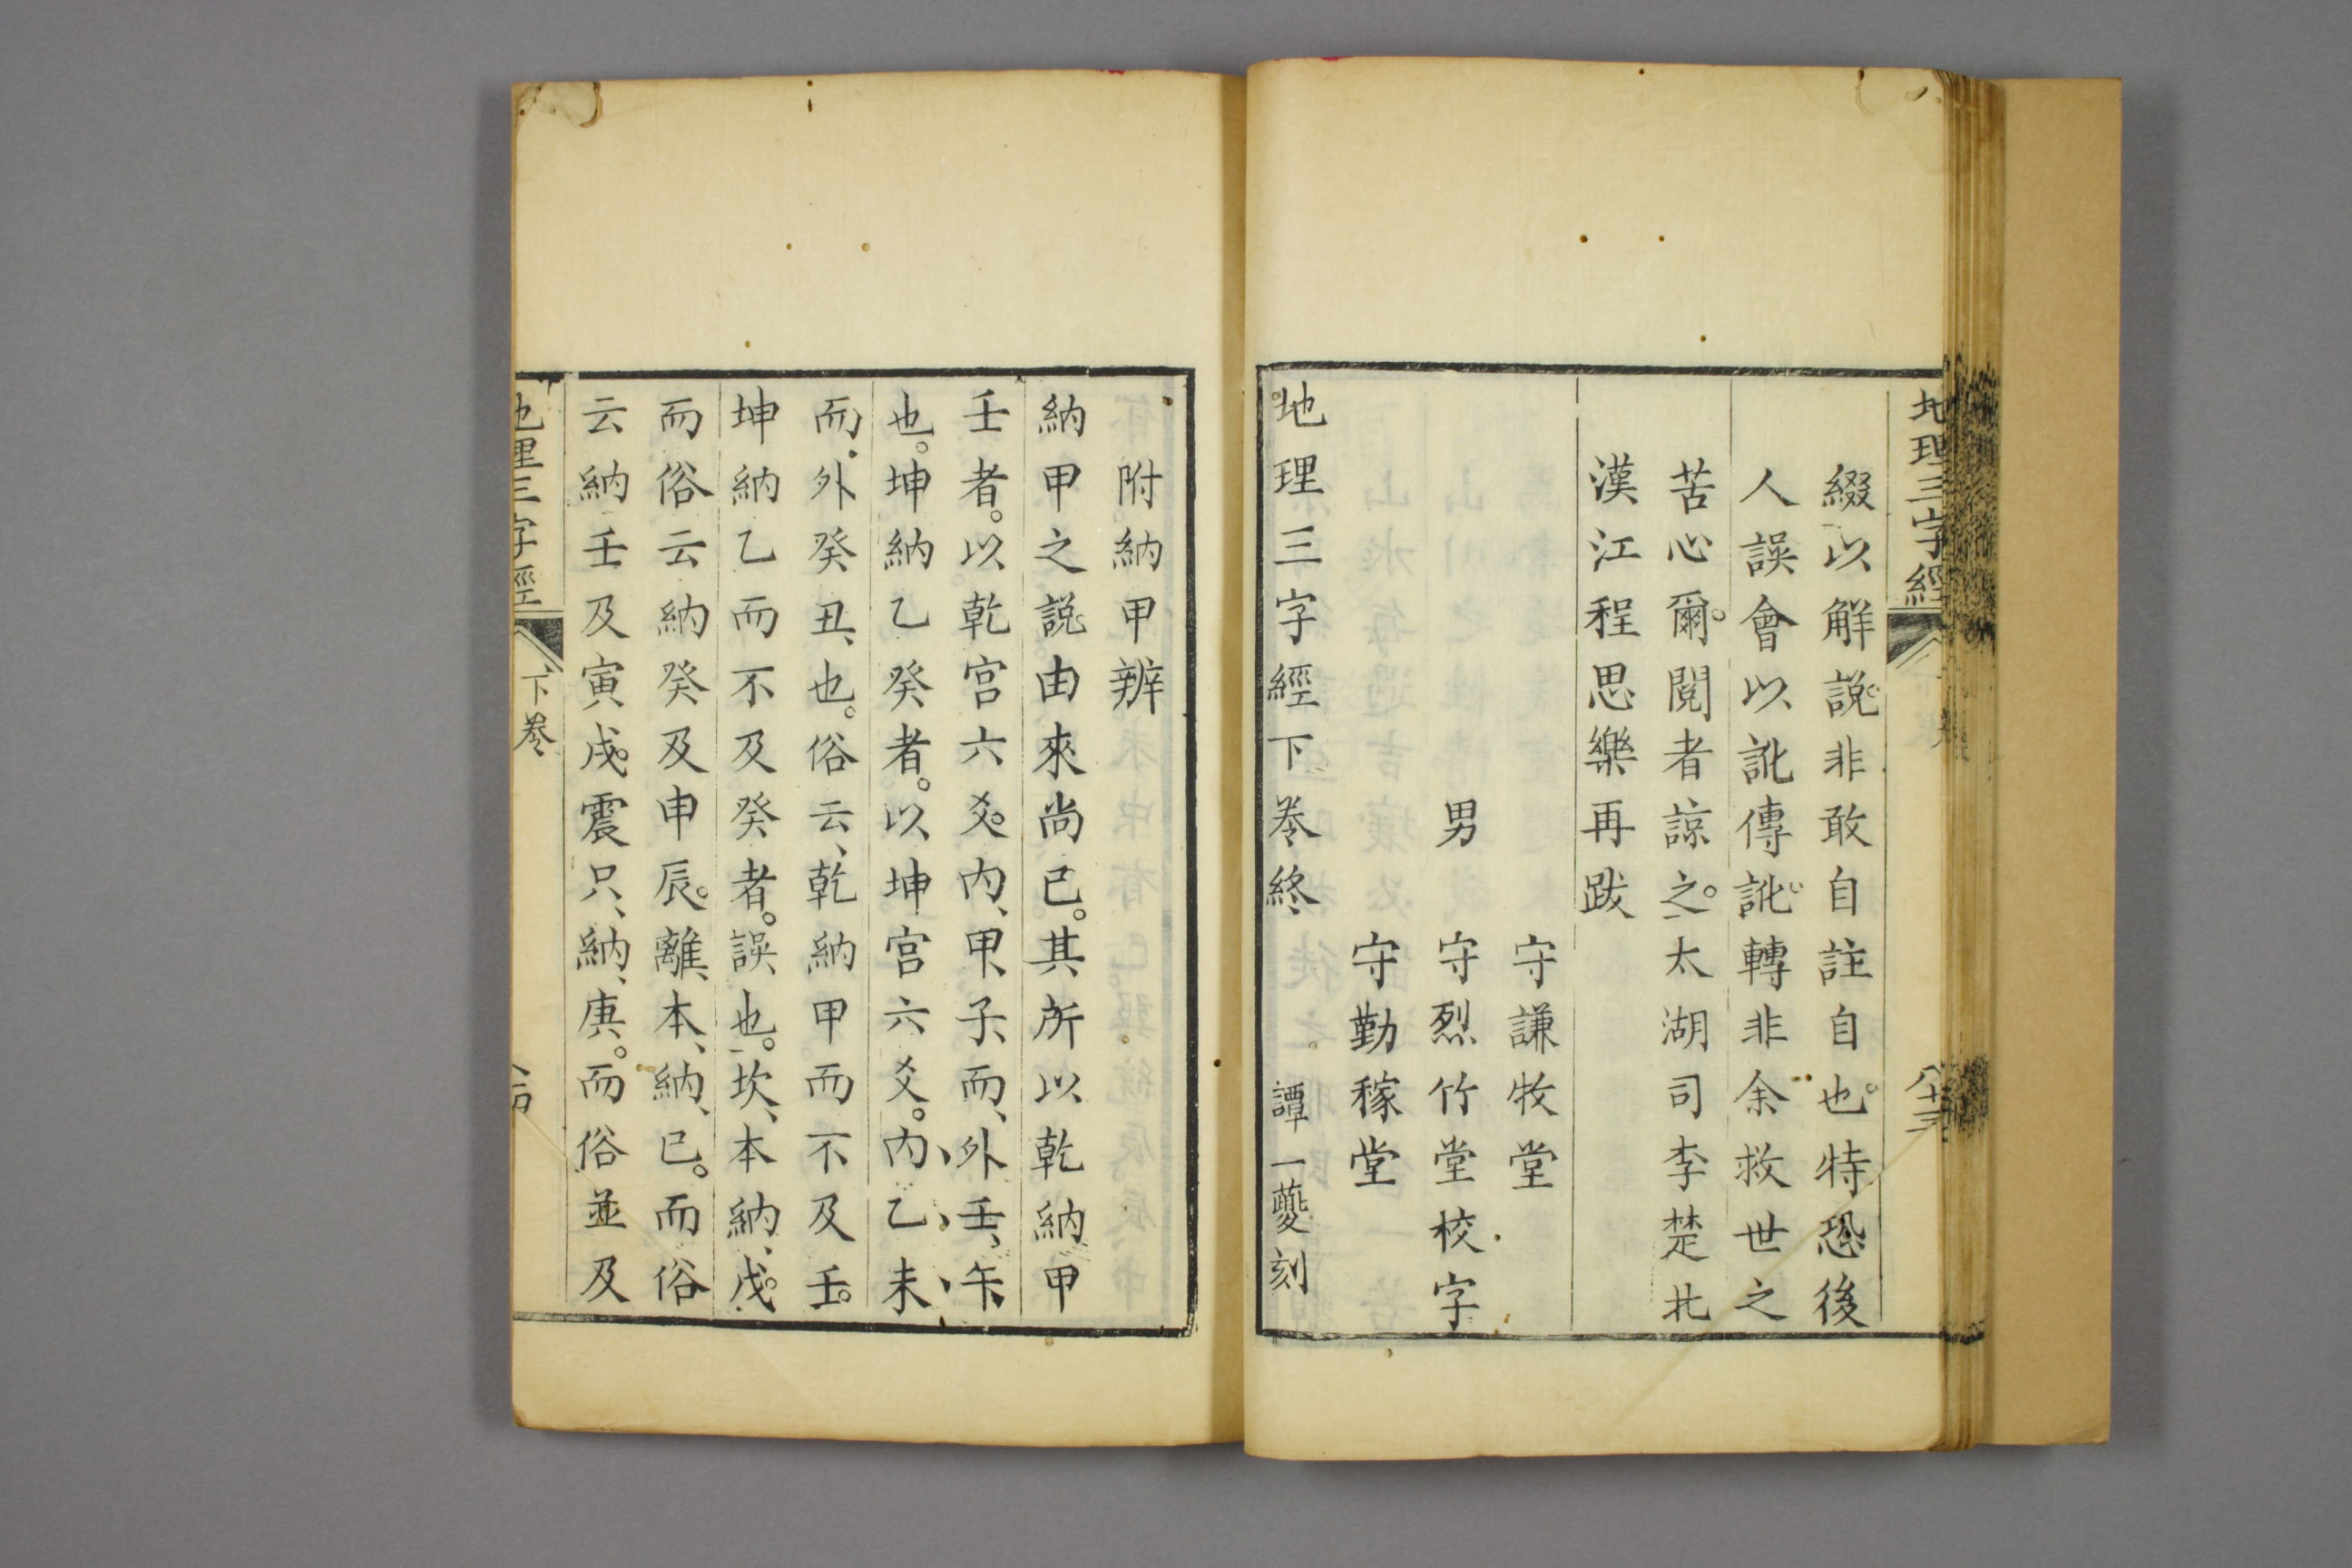 地理三字經
八十三
綴以解說非敢自註自也。特恐後
人誤會以訛傳訛轉非余救世之
苦心爾。閱者諒之。太湖司李楚北
漢江程思樂再跋
守謙牧堂
男 守烈竹堂校字
守勤稼堂
地理三字經下卷終 譚一夔刻
附納甲辨
納甲之說由來尚已。其所以乾納甲
壬者。以乾宮六爻內、甲、子、而、外、壬、午、
也。坤納乙癸者。以坤宮六爻。內、乙、未、
而、外癸丑、也。俗云、乾納甲而不及壬。
坤納乙而不及癸者。誤也。坎、本納、戊。
而俗云納癸及申辰。離、本、納、已。而俗
云納壬及寅戌。震只、納、庚。而俗並及
地理三字經
下卷